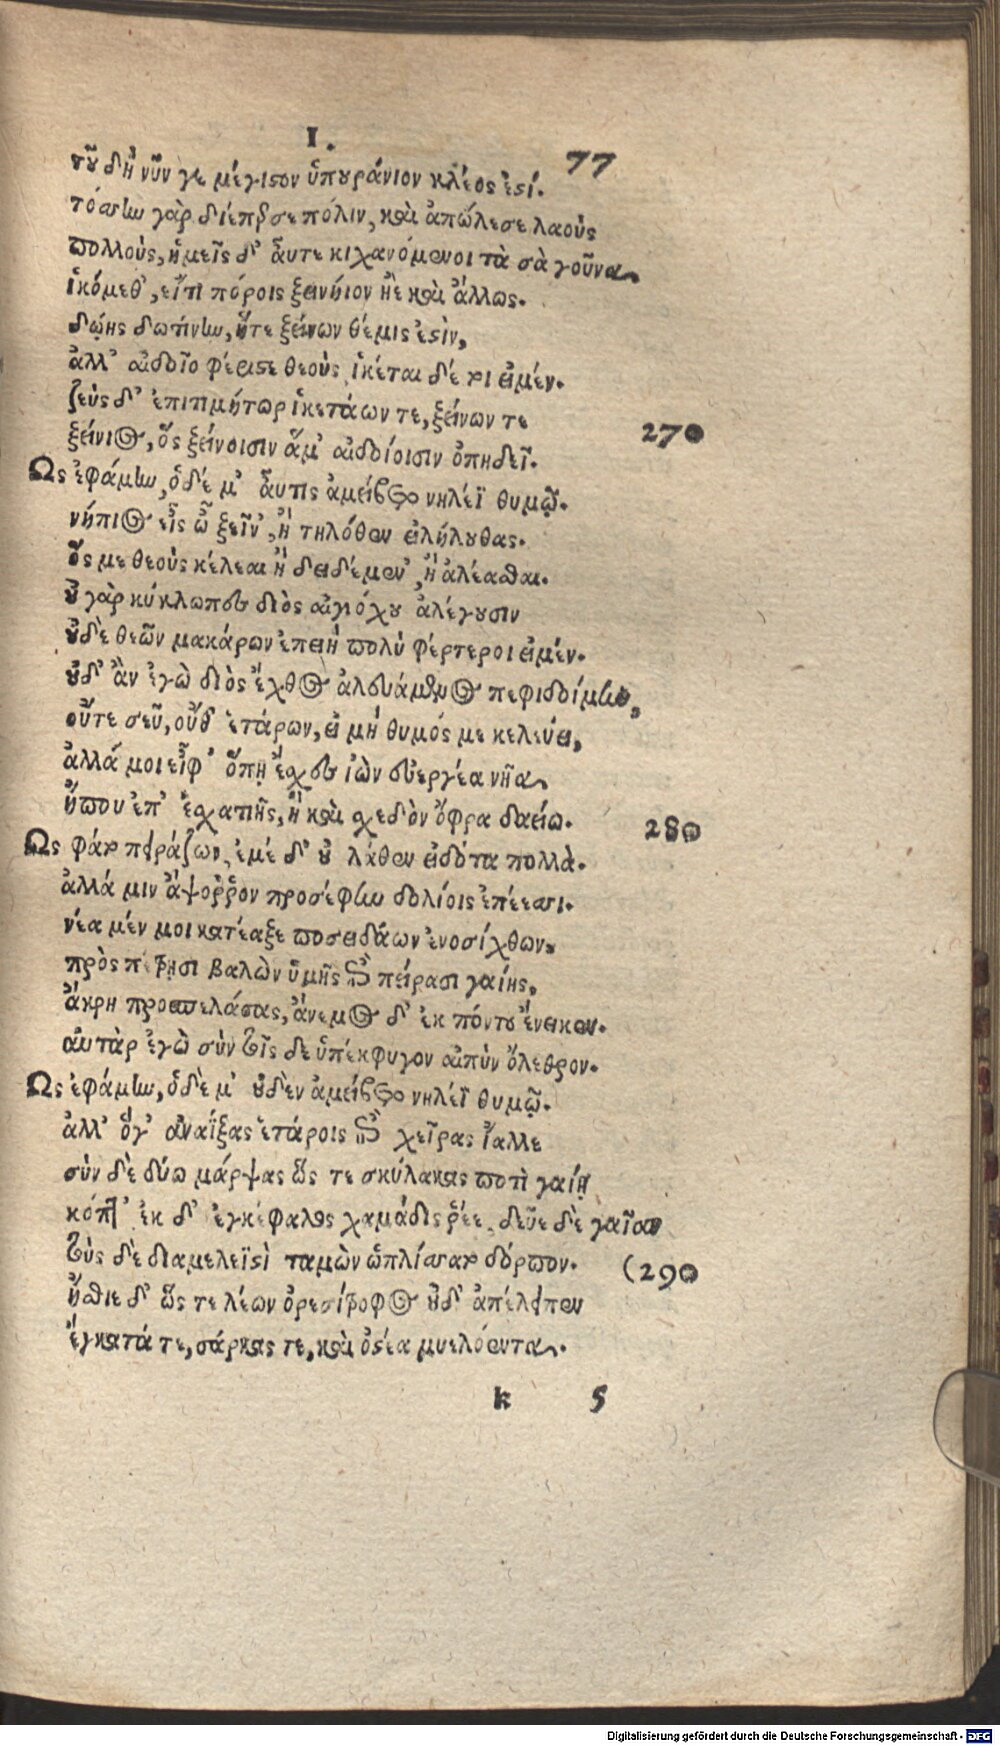 I. 77
τοῦ δὴ νῦν γε μέγιστον ὑπουράνιον κλέος ἐστί.
τόσσην γὰρ διέπερσε πόλιν, καὶ ἀπώλεσε λαοὺς
πολλούς, ἡμεῖς δ' αὖτε κιχανόμενοι τὰ σὰ γοῦνα
ἱκόμεθ', εἴτι πόροις ξεινήιον ἠὲ καὶ ἄλλως.
δῴης δωτίνην, ἥτε ξείνων θέμις ἐστίν,
ἀλλ' αἰδοῖο φέριστε θεοὺς ἱκέται δέ τοι εἰμέν.
ζεὺς δ' ἐπιτιμήτωρ ἱκετάων τε, ξείνων τε 270
ξείνιος, ὃς ξείνοισιν ἅμ' αἰδοίοισιν ὀπηδεῖ.
Ως ἐφάμην, ὁ δέ μ' αὖτις ἀμείβετο νηλέϊ θυμῷ.
νήπιος εἶς ὦ ξεῖν', ἢ τηλόθεν εἰλήλουθας.
ὅς με θεοὺς κέλεαι ἢ δειδέμεν, ἢ ἀλέασθαι.
οὐ γὰρ κύκλωπες διὸς αἰγιόχου ἀλέγουσιν
οὐδὲ θεῶν μακάρων ἐπειὴ πολὺ φέρτεροι εἰμέν.
οὐδ' ἂν ἐγὼ διὸς ἔχθος ἀλευάμενος πεφιδοίμην,
οὔτε σεῦ, οὔθ' ἑτάρων, εἰ μὴ θυμός με κελεύει,
ἀλλά μοι εἶφ' ὅπῃ ἔσχες ἰὼν εὐεργέα νῆα
ἤπου ἐπ' ἐσχατιῆς, ἢ καὶ σχεδὸν ὄφρα δαείω. 280
Ως φάτο πειράζων, ἐμὲ δ' οὐ λάθεν εἰδότα πολλά.
ἀλλά μιν ἄψορρον προσέφην δολίοις ἐπέεσσι.
νέα μέν μοι κατέαξε ποσειδάων ἐνοσίχθων,
πρὸς πέτρῃσι βαλὼν ὑμῆς ἐπὶ πείρασι γαίης,
ἄκρῃ προσπελάσας, ἄνεμος δ' ἐκ πόντου ἔνεικεν.
αὐτὰρ ἐγὼ σὺν τοῖς δε ὑπέκφυγον αἰπὺν ὄλεθρον.
Ως ἐφάμην, ὁ δὲ μ' οὐδὲν ἀμείβετο νηλέϊ θυμῷ.
ἀλλ' ὅγ' ἀναΐξας ἑτάροις ἐπὶ χεῖρας ἴαλλε
σὺν δὲ δύω μάρψας ὥς τε σκύλακας ποτὶ γαίῃ
κόπτ' ἐκ δ' ἐγκέφαλος χαμάδις ῥέε, δεῦε δὲ γαῖαν
τοὺς δὲ διαμελεϊστὶ ταμὼν ὡπλίσσατο δόρπον. (290
ἤσθιε δ' ὥς τε λέων ὀρεσίτροφος οὐδ' ἀπέλειπεν
ἔγκατά τε, σάρκας τε, καὶ ὀστέα μυελόεντα.
k 5
Digitalisierung gefördert durch die Deutsche Forschungsgemeinschaft - DFG